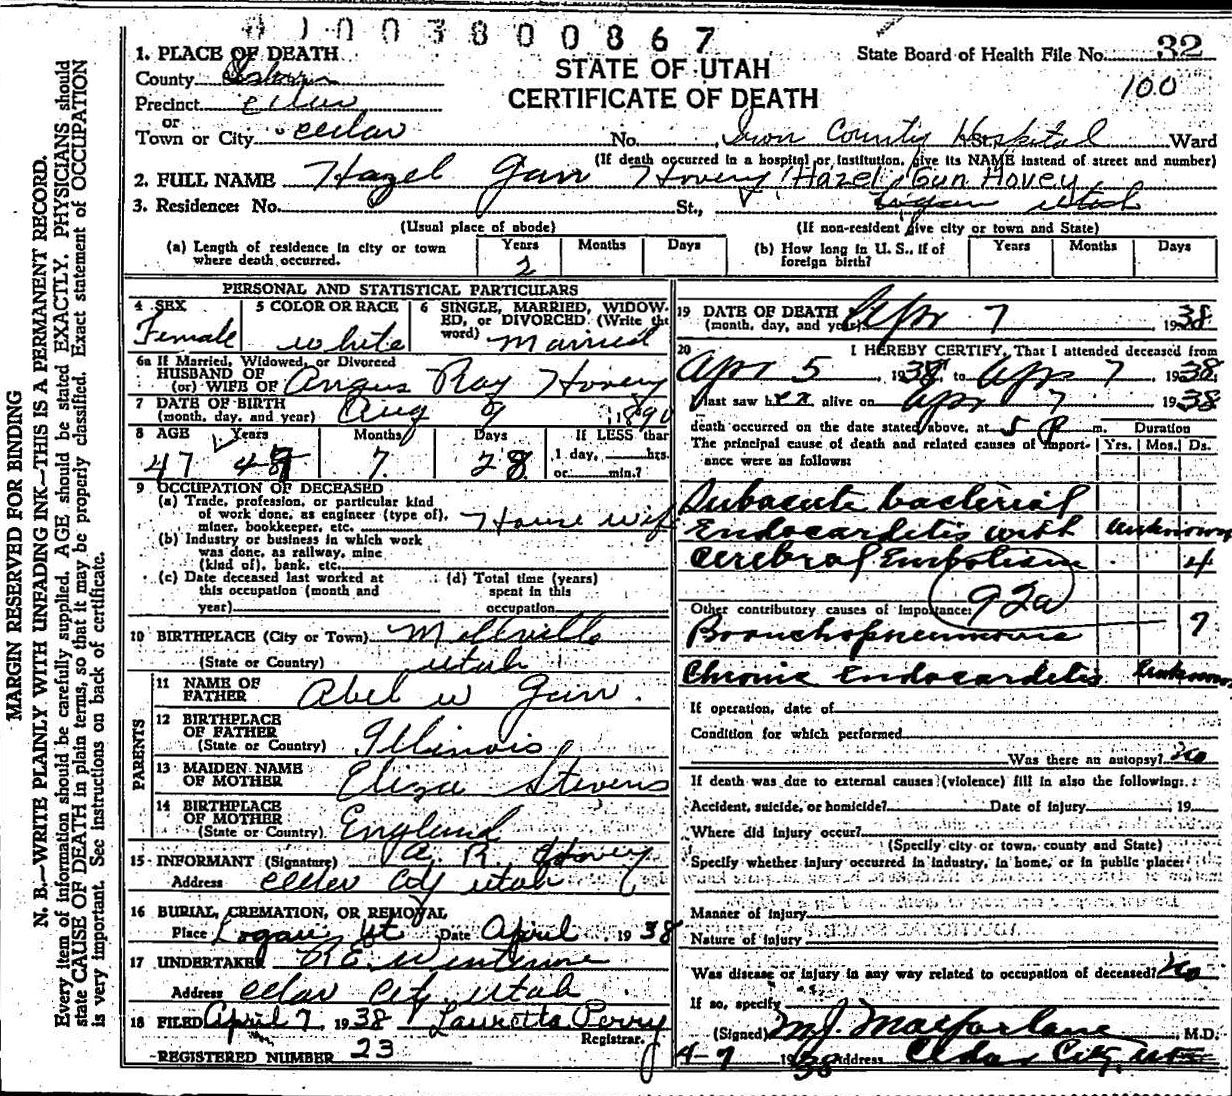 0 1 0 0 3 8 0 0 8 6 7
1. PLACE OF DEATH
County
STATE OF UTAH
CERTIFICATE OF DEATH
State Board of Health File No. 32
100
Precinct
or
Town or City Cedar No. Iron County Hospital St. Ward
(If death occurred in a hospital or institution, give its NAME instead of street and number)
2. FULL NAME Hazel Garr Hovey (Hazel Gun Hovey
3. Residence: No. St., Logan Utah
(Usual place of abode) (If non-resident give city or town and State)
(a) Length of residence in city or town where death occurred. Years 2 Months Days (b) How long in U. S., if of foreign birth? Years Months Days
PERSONAL AND STATISTICAL PARTICULARS
4 SEX Female
5 COLOR OR RACE white
6 SINGLE, MARRIED, WIDOWED, or DIVORCED (Write the word) Married
6a If Married, Widowed, or Divorced
HUSBAND OF
(or) WIFE OF Angus Ray Hovey
7 DATE OF BIRTH
(month, day, and year) Aug 9 1890
8 AGE Years Months Days If LESS than
47 7 28 1 day, hrs.
or min.?
9 OCCUPATION OF DECEASED
(a) Trade, profession, or particular kind
of work done, as engineer (type of),
miner, bookkeeper, etc. House wife
(b) Industry or business in which work
was done, as railway, mine
(kind of), bank, etc.
(c) Date deceased last worked at
this occupation (month and
year)
(d) Total time (years)
spent in this
occupation
10 BIRTHPLACE (City or Town) Millville
(State or Country) Utah
PARENTS
11 NAME OF
FATHER Abel W Garr.
12 BIRTHPLACE
OF FATHER
(State or Country) Illinois
13 MAIDEN NAME
OF MOTHER Eliza Stevens
14 BIRTHPLACE
OF MOTHER
(State or Country) England
15 INFORMANT (Signature) A. R. Hovey
Address Cedar City Utah
16 BURIAL, CREMATION, OR REMOVAL
Place Logan Ut Date April 1938
17 UNDERTAKER
Address Cedar City Utah
18 FILED April 7 1938 Lauretta Perry
Registrar.
REGISTERED NUMBER 23
19 DATE OF DEATH
(month, day, and year) Apr 7 1938
20 I HEREBY CERTIFY, That I attended deceased from
Apr 5, 1938, to Apr 7, 1938,
I last saw her alive on Apr 7 1938
death occurred on the date stated above, at 5 P m. Duration
The principal cause of death and related causes of importance were as follows: Yrs. Mos. Ds.
Subacute bacterial
Endocardetis with unknown
Cerebral Embolism 4
92a
Other contributory causes of importance:
Bronchopneumonia
Chronic Endocardetis Unknown
If operation, date of
Condition for which performed
Was there an autopsy? no
If death was due to external causes (violence) fill in also the following:
Accident, suicide, or homicide? Date of injury 19
Where did injury occur?
(Specify city or town, county and State)
Specify whether injury occurred in industry, in home, or in public place:
Manner of injury
Nature of injury
Was disease or injury in any way related to occupation of deceased? no
If so, specify
(Signed) M.J. Macfarlane M.D.
4-7 1938 Address Cedar City, Ut
MARGIN RESERVED FOR BINDING
N. B.—WRITE PLAINLY WITH UNFADING INK—THIS IS A PERMANENT RECORD.
Every item of information should be carefully supplied. AGE should be stated EXACTLY. PHYSICIANS should
state CAUSE OF DEATH in plain terms, so that it may be properly classified. Exact statement of OCCUPATION
is very important. See instructions on back of certificate.